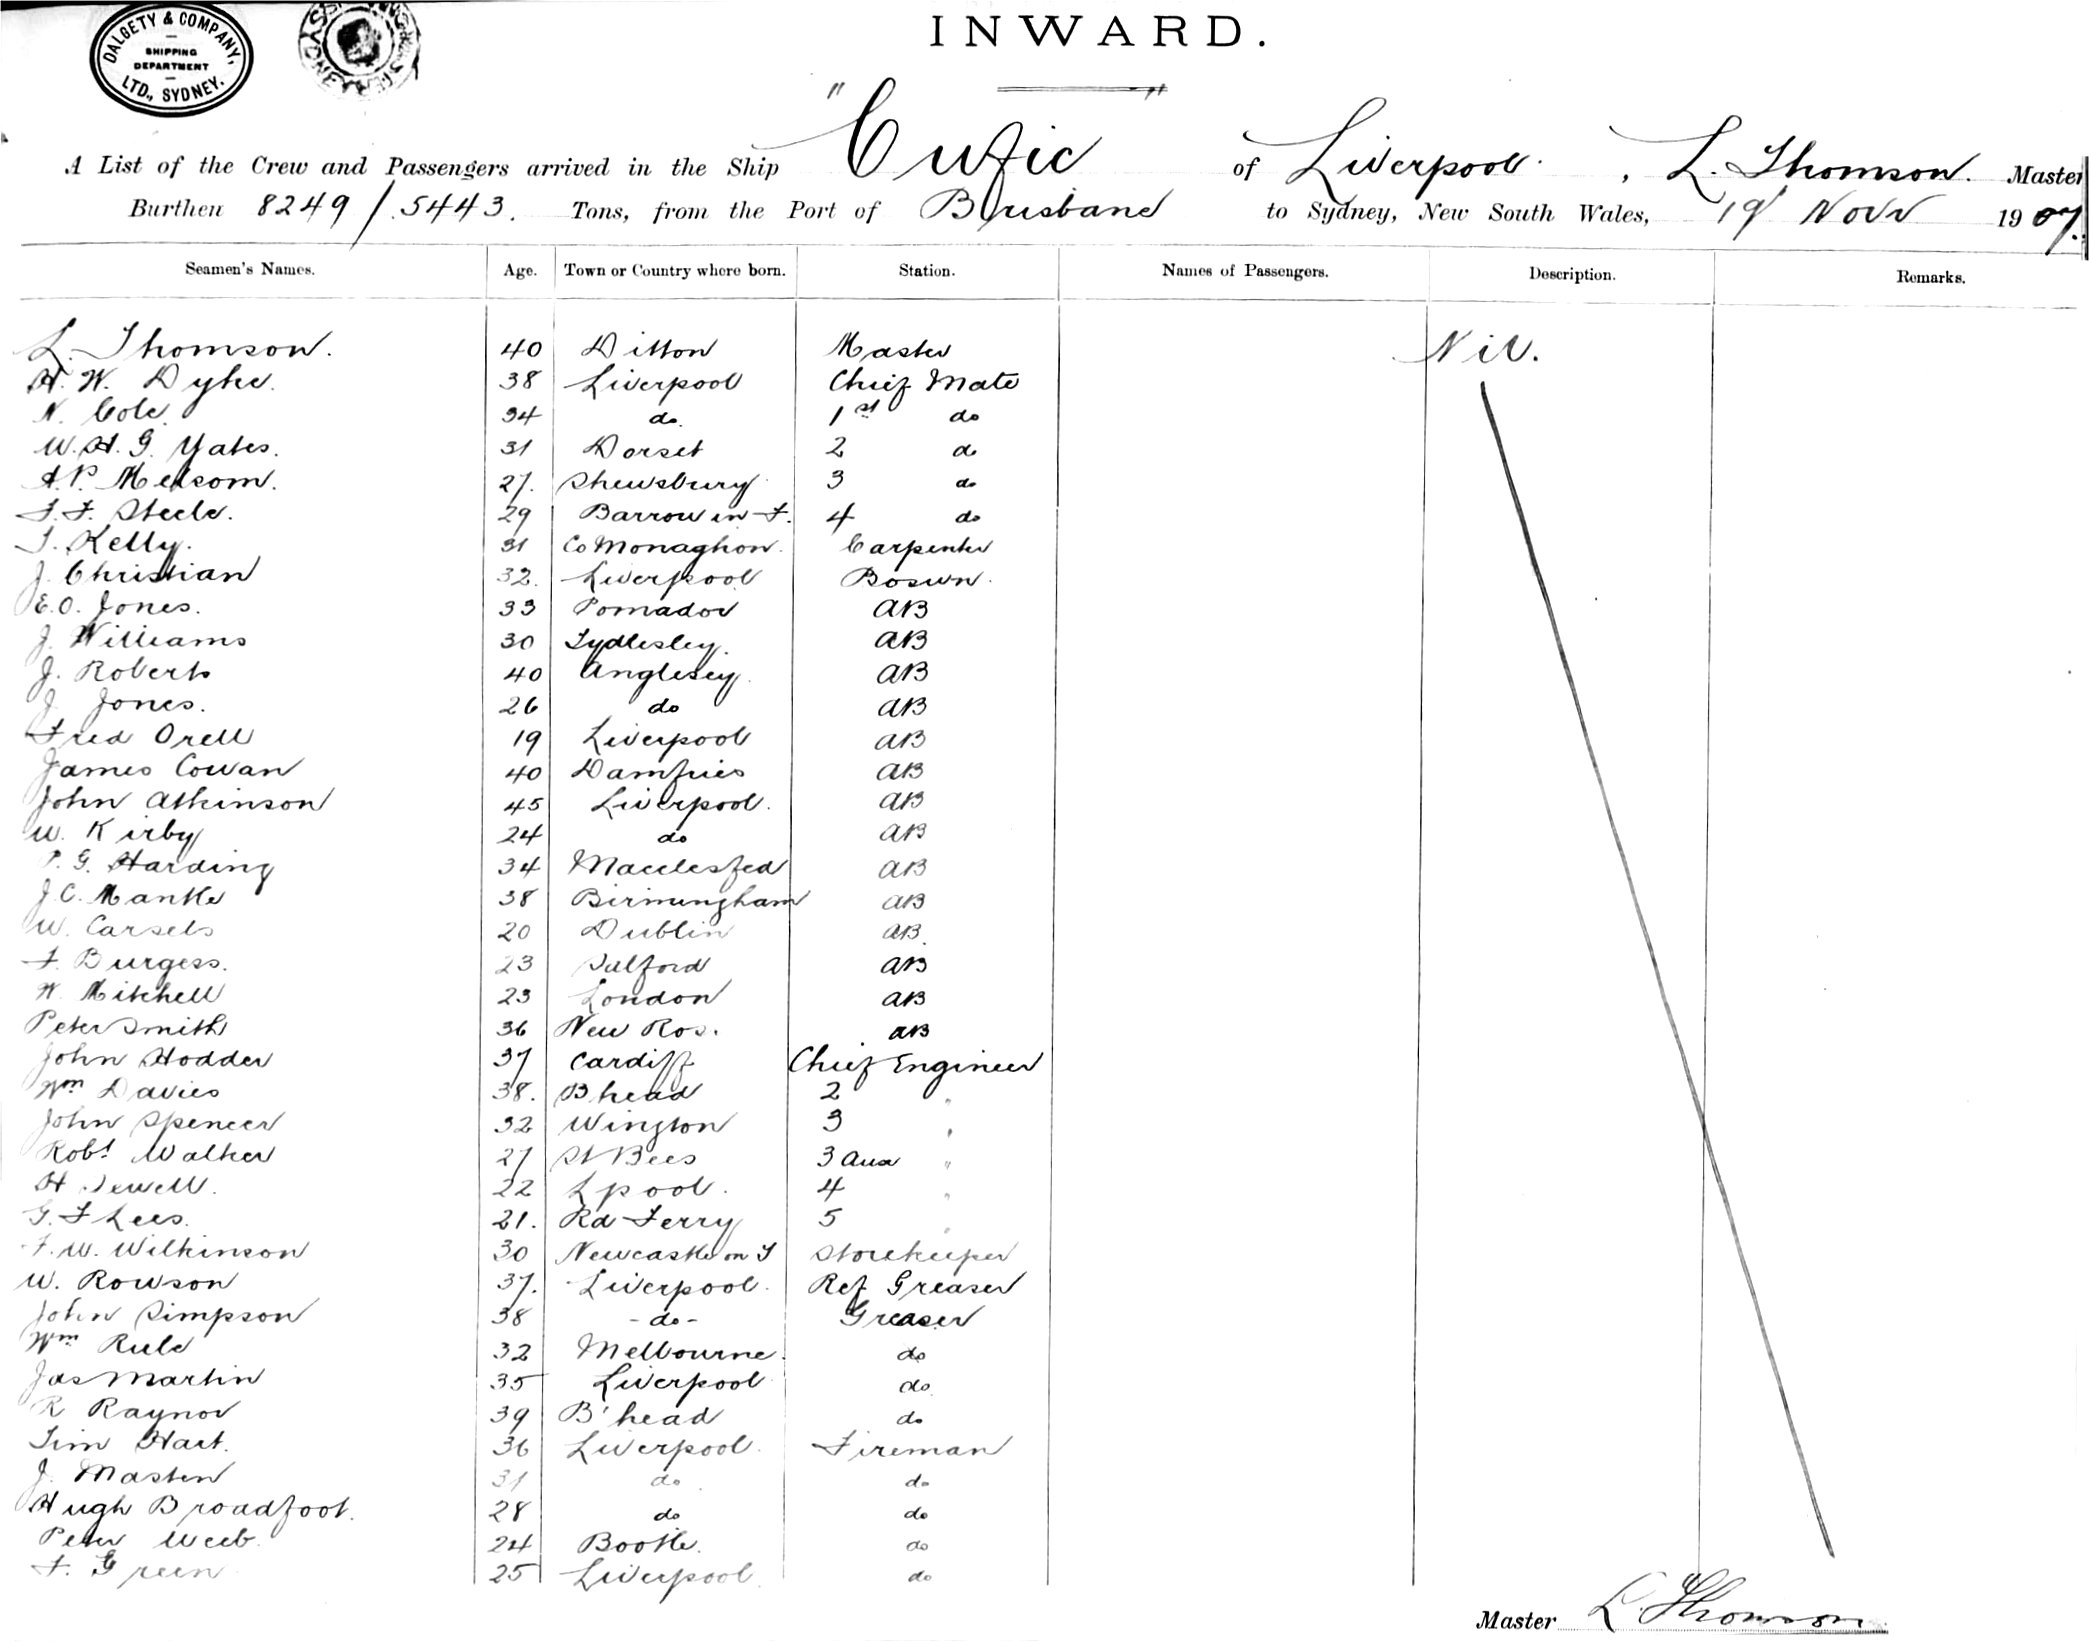 DALGETY & COMPANY, LTD., SYDNEY.
SHIPPING DEPARTMENT
SYDNEY
INWARD.
A List of the Crew and Passengers arrived in the Ship "Cufic" of Liverpool, L. Thomson. Master
Burthen 8249/5443. Tons, from the Port of Brisbane to Sydney, New South Wales, 19 Novr 1907.
Seamen's Names. Age. Town or Country where born. Station. Names of Passengers. Description. Remarks.
L. Thomson. 40 Ditton Master Nil.
H. W. Dyke. 38 Liverpool Chief Mate
N. Cole 34 do. 1st do
W. H. G. Yates. 31 Dorset 2 do
A. P. Melsom. 27. Shewsbury 3 do
T. F. Steele. 29 Barrow in F. 4 do
T. Kelly. 31 Co Monaghon. Carpenter
J. Christian 32. Liverpool Boswn.
E. O. Jones. 33 Pomador AB
J. Williams 30 Tydlesley. AB
J. Roberts 40 Anglesey. AB
J. Jones. 26 do AB
Fred Orell 19 Liverpool AB
James Cowan 40 Damfries AB
John Atkinson 45 Liverpool. AB
W. Kirby 24 do AB
P. G. Harding 34 Macclesfed AB
J. C. Mantle 38 Birmungham AB
W. Carsels 20 Dublin AB.
F. Burgess. 23 Salford AB
W. Mitchell 23 London AB
Peter Smith 36 New Ros. AB
John Hodder 37 Cardiff Chief Engineer
Wm Davies 38. B head 2 "
John Spencer 32 Wington 3 "
Robt Walker 27 St Bees 3 Aux "
H Jewell. 22 L pool. 4 "
G. F Lees. 21. Rd Ferry 5 "
F. W. Wilkinson 30 Newcastle on T Storekeeper
W. Rowson 37. Liverpool. Ref Greaser
John Simpson 38 - do - Greaser
Wm Rule 32 Melbourne. do
Jas Martin 35 Liverpool do
R Raynor 39 B'head do
Tim Hart. 36 Liverpool. Fireman
J. Masten 31 do do
Hugh Broadfoot. 28 do do
Peter Weeb. 24 Bootle. do
F. Green 25 Liverpool. do
Master L. Thomson